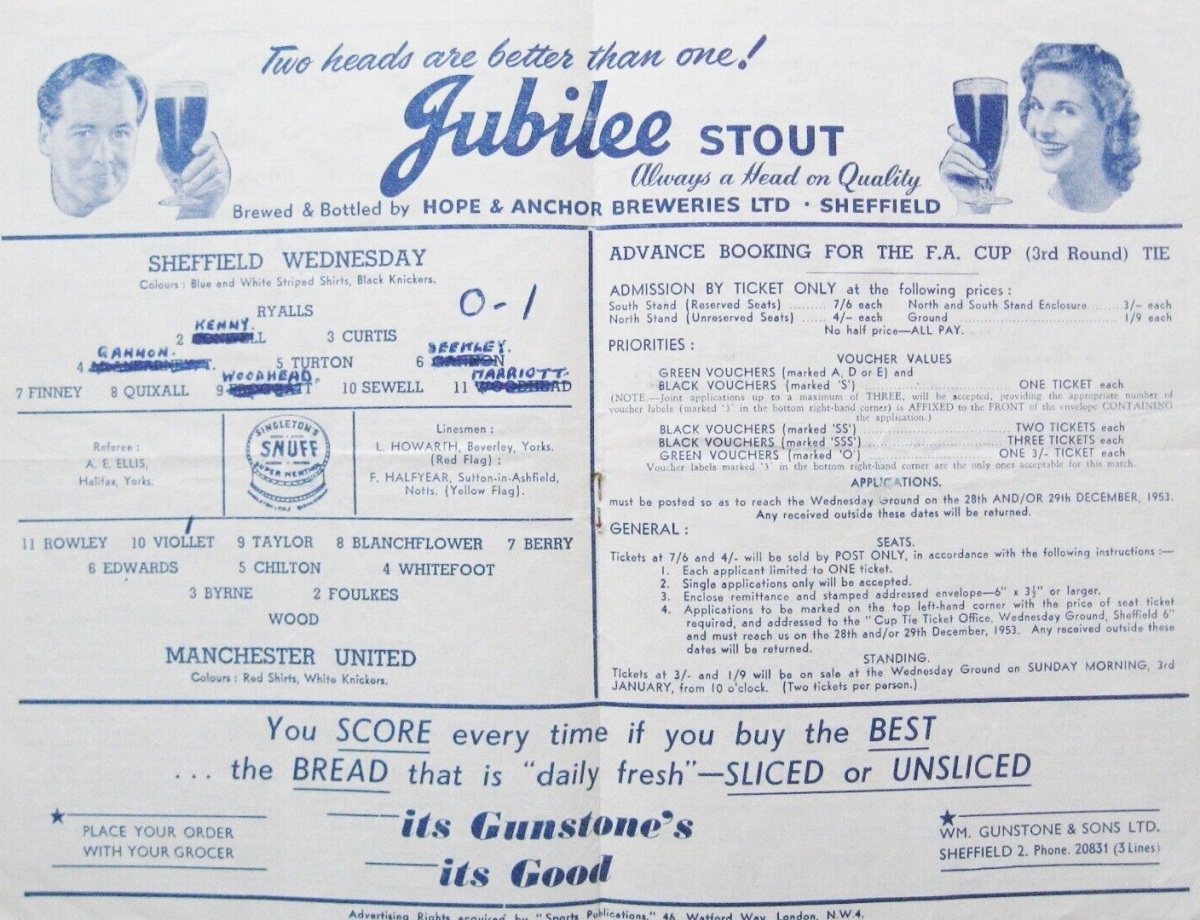 Two heads are better than one!
Jubilee STOUT
Always a Head on Quality
Brewed & Bottled by HOPE & ANCHOR BREWERIES LTD · SHEFFIELD
SHEFFIELD WEDNESDAY
Colours : Blue and White Striped Shirts, Black Knickers.
0-1
RYALLS
KENNY.
2 3 CURTIS
GANNON. BEEKLEY.
4 5 TURTON 6 GANNON
WOODHEAD. MARRIOTT.
7 FINNEY 8 QUIXALL 9 10 SEWELL 11 WOODHEAD
Referee :
A. E. ELLIS,
Halifax, Yorks.
SINGLETON'S
SNUFF
SUPER MENTHOL
Linesmen :
L. HOWARTH, Beverley, Yorks.
(Red Flag) :
F. HALFYEAR, Sutton-in-Ashfield,
Notts. (Yellow Flag).
11 ROWLEY 10 VIOLLET 9 TAYLOR 8 BLANCHFLOWER 7 BERRY
6 EDWARDS 5 CHILTON 4 WHITEFOOT
3 BYRNE 2 FOULKES
WOOD
MANCHESTER UNITED
Colours : Red Shirts, White Knickers.
ADVANCE BOOKING FOR THE F.A. CUP (3rd Round) TIE
ADMISSION BY TICKET ONLY at the following prices :
South Stand (Reserved Seats) ......... 7/6 each North and South Stand Enclosure ...... 3/- each
North Stand (Unreserved Seats) ...... 4/- each Ground ...... 1/9 each
No half price—ALL PAY.
PRIORITIES :
VOUCHER VALUES
GREEN VOUCHERS (marked A, D or E) and
BLACK VOUCHERS (marked 'S') ...... ONE TICKET each
(NOTE.—Joint applications up to a maximum of THREE, will be accepted, providing the appropriate number of
voucher labels (marked '3' in the bottom right-hand corner) is AFFIXED to the FRONT of the envelope CONTAINING
the application.)
BLACK VOUCHERS (marked 'SS') ...... TWO TICKETS each
BLACK VOUCHERS (marked 'SSS') ...... THREE TICKETS each
GREEN VOUCHERS (marked 'O') ...... ONE 3/- TICKET each
Voucher labels marked '3' in the bottom right-hand corner are the only ones acceptable for this match.
APPLICATIONS.
must be posted so as to reach the Wednesday Ground on the 28th AND/OR 29th DECEMBER, 1953.
Any received outside these dates will be returned.
GENERAL :
SEATS.
Tickets at 7/6 and 4/- will be sold by POST ONLY, in accordance with the following instructions :—
1. Each applicant limited to ONE ticket.
2. Single applications only will be accepted.
3. Enclose remittance and stamped addressed envelope—6" x 3½" or larger.
4. Applications to be marked on the top left-hand corner with the price of seat ticket
required, and addressed to the "Cup Tie Ticket Office, Wednesday Ground, Sheffield 6"
and must reach us on the 28th and/or 29th December, 1953. Any received outside these
dates will be returned.
STANDING.
Tickets at 3/- and 1/9 will be on sale at the Wednesday Ground on SUNDAY MORNING, 3rd
JANUARY, from 10 o'clock. (Two tickets per person.)
You SCORE every time if you buy the BEST
... the BREAD that is "daily fresh"—SLICED or UNSLICED
PLACE YOUR ORDER
WITH YOUR GROCER
its Gunstone's
its Good
WM. GUNSTONE & SONS LTD.
SHEFFIELD 2. Phone. 20831 (3 Lines)
Advertising Rights acquired by "Sports Publications," 46, Watford Way, London, N.W.4.